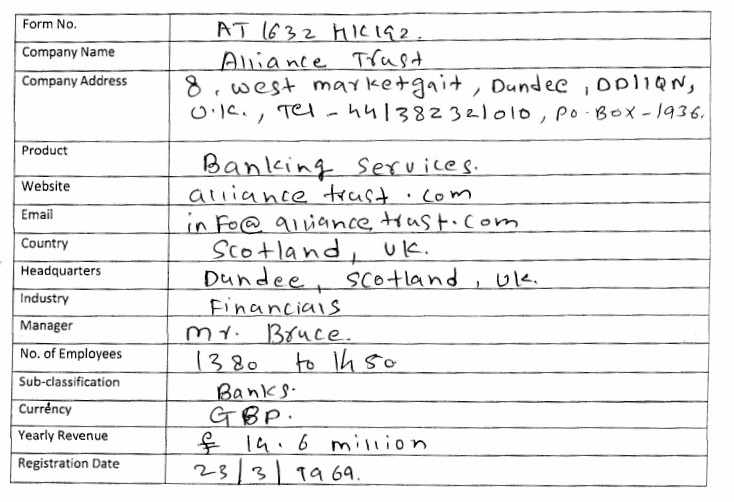 Form No. AT 1632 HK192.
Company Name Alliance Trust
Company Address 8, west marketgait, Dundee, DD11QN,
U.K., Tel - 441382321010, PO. BOX - 1936.
Product Banking services.
Website alliance trust . com
Email info@ alliance trust. com
Country Scotland, UK.
Headquarters Dundee, Scotland, UK.
Industry Financials
Manager Mr. Bruce.
No. of Employees 1380 to 1450
Sub-classification Banks.
Currency GBP.
Yearly Revenue £ 19.6 million
Registration Date 23/3/1969.